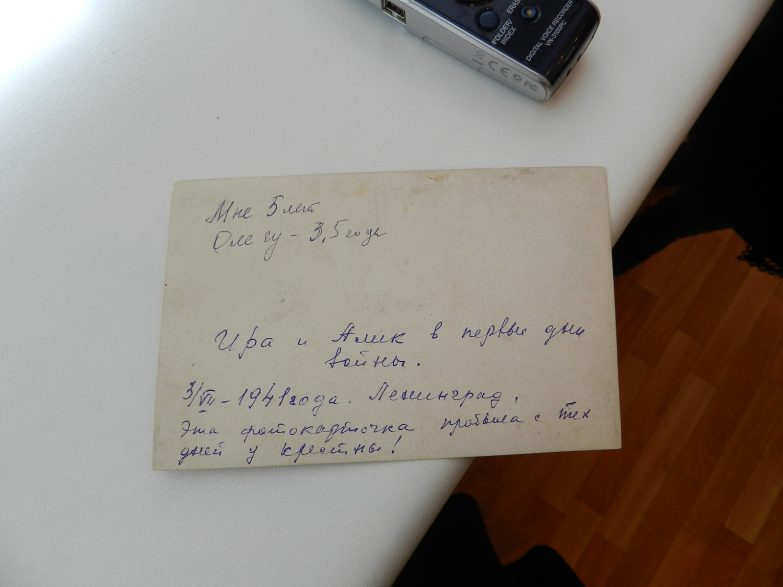 FOLDER/
INDEX
ERASE
DIGITAL VOICE RECORDER
VN-3100PC
Мне 5 лет
Олегу - 3,5 года
Ира и Алик в первые дни
войны.
3/VII - 1941 года. Ленинград.
Эта фотокарточка пробыла с тех
дней у крестны!